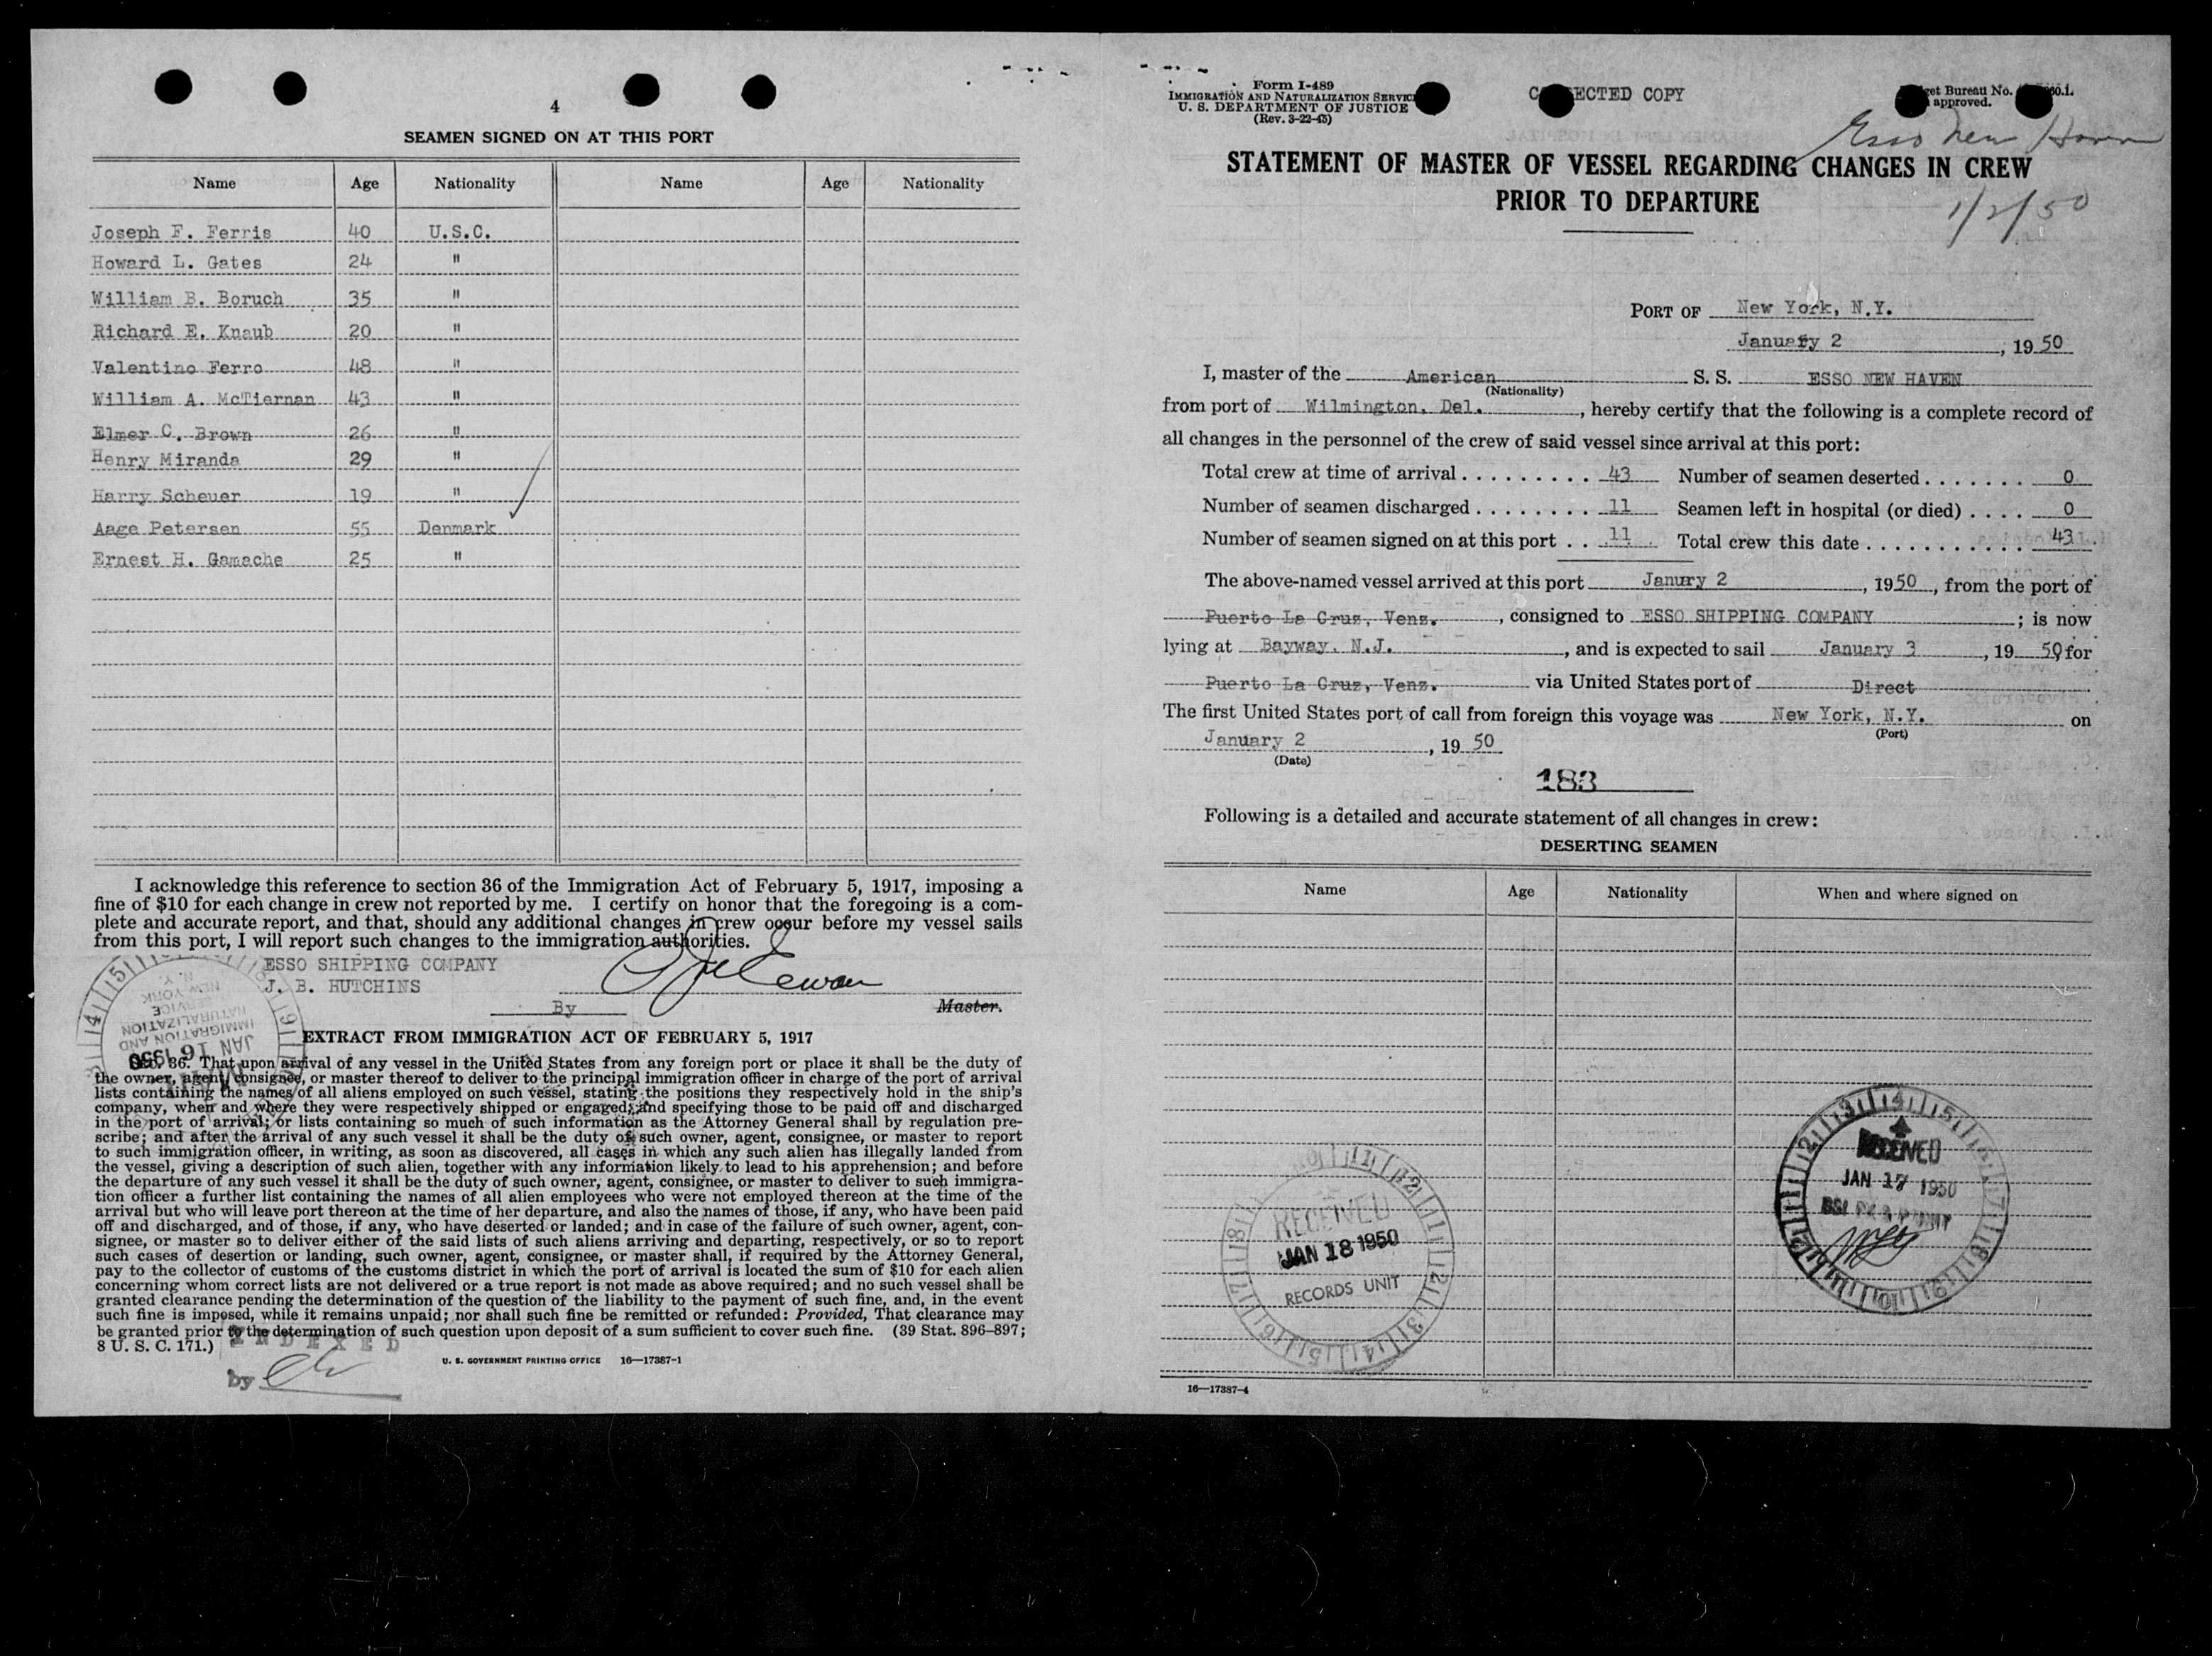 4
SEAMEN SIGNED ON AT THIS PORT
Name Age Nationality Name Age Nationality
Joseph F. Ferris 40 U.S.C.
Howard L. Gates 24 "
William B. Boruch 35 "
Richard E. Knaub 20 "
Valentino Ferro 48 "
William A. McTiernan 43 "
Elmer C. Brown 26 "
Henry Miranda 29 "
Harry Scheuer 19 "
Aage Petersen 55 Denmark
Ernest H. Gamache 25 "
I acknowledge this reference to section 36 of the Immigration Act of February 5, 1917, imposing a
fine of $10 for each change in crew not reported by me. I certify on honor that the foregoing is a com-
plete and accurate report, and that, should any additional changes in crew occur before my vessel sails
from this port, I will report such changes to the immigration authorities.
ESSO SHIPPING COMPANY
J. B. HUTCHINS
By Master.
IMMIGRATION AND
NATURALIZATION
SERVICE
NEW YORK
N. Y.
JAN 16 1950
EXTRACT FROM IMMIGRATION ACT OF FEBRUARY 5, 1917
SEC. 36. That upon arrival of any vessel in the United States from any foreign port or place it shall be the duty of
the owner, agent, consignee, or master thereof to deliver to the principal immigration officer in charge of the port of arrival
lists containing the names of all aliens employed on such vessel, stating the positions they respectively hold in the ship's
company, when and where they were respectively shipped or engaged, and specifying those to be paid off and discharged
in the port of arrival; or lists containing so much of such information as the Attorney General shall by regulation pre-
scribe; and after the arrival of any such vessel it shall be the duty of such owner, agent, consignee, or master to report
to such immigration officer, in writing, as soon as discovered, all cases in which any such alien has illegally landed from
the vessel, giving a description of such alien, together with any information likely to lead to his apprehension; and before
the departure of any such vessel it shall be the duty of such owner, agent, consignee, or master to deliver to such immigra-
tion officer a further list containing the names of all alien employees who were not employed thereon at the time of the
arrival but who will leave port thereon at the time of her departure, and also the names of those, if any, who have been paid
off and discharged, and of those, if any, who have deserted or landed; and in case of the failure of such owner, agent, con-
signee, or master so to deliver either of the said lists of such aliens arriving and departing, respectively, or so to report
such cases of desertion or landing, such owner, agent, consignee, or master shall, if required by the Attorney General,
pay to the collector of customs of the customs district in which the port of arrival is located the sum of $10 for each alien
concerning whom correct lists are not delivered or a true report is not made as above required; and no such vessel shall be
granted clearance pending the determination of the question of the liability to the payment of such fine, and, in the event
such fine is imposed, while it remains unpaid; nor shall such fine be remitted or refunded: Provided, That clearance may
be granted prior to the determination of such question upon deposit of a sum sufficient to cover such fine. (39 Stat. 896–897;
8 U. S. C. 171.)
INDEXED
by
U. S. GOVERNMENT PRINTING OFFICE 16—17387-1
Form I-489
IMMIGRATION AND NATURALIZATION SERVICE
U. S. DEPARTMENT OF JUSTICE
(Rev. 3-22-45)
CORRECTED COPY
Budget Bureau No.
approved.
Esso New Haven
STATEMENT OF MASTER OF VESSEL REGARDING CHANGES IN CREW
PRIOR TO DEPARTURE
1/2/50
PORT OF New York, N.Y.
January 2, 1950
I, master of the American S. S. ESSO NEW HAVEN
(Nationality)
from port of Wilmington, Del., hereby certify that the following is a complete record of
all changes in the personnel of the crew of said vessel since arrival at this port:
Total crew at time of arrival . . . . . . . . . 43 Number of seamen deserted . . . . . . . 0
Number of seamen discharged . . . . . . . . 11 Seamen left in hospital (or died) . . . . 0
Number of seamen signed on at this port . . 11 Total crew this date . . . . . . . . . . . . 43
The above-named vessel arrived at this port Janury 2, 1950, from the port of
Puerto La Cruz, Venz., consigned to ESSO SHIPPING COMPANY; is now
lying at Bayway, N.J., and is expected to sail January 3, 1950 for
Puerto La Cruz, Venz. via United States port of Direct.
The first United States port of call from foreign this voyage was New York, N.Y. on
(Port)
January 2, 1950
(Date)
183
Following is a detailed and accurate statement of all changes in crew:
DESERTING SEAMEN
Name Age Nationality When and where signed on
RECEIVED
JAN 18 1950
RECORDS UNIT
RECEIVED
JAN 17 1950
16—17387-4